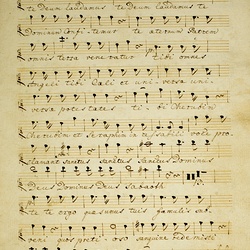 te deum laudamus te deum laudamus te
Dominum confi temur te aternum Patrem
omnis terra vene ratur Tibi omnes
Angeli tibi Cali et uni versa uni
versa potes tates ti bi Cherubim
Cherubim et Seraphim in ces sabili voce pro
clamant Sanctus Sanctus Sanctus Dominus
Deus Dominus Deus Sabaoth
te te ergo quasumus tuis famulis
veni quos preti oso sanguine redemisti